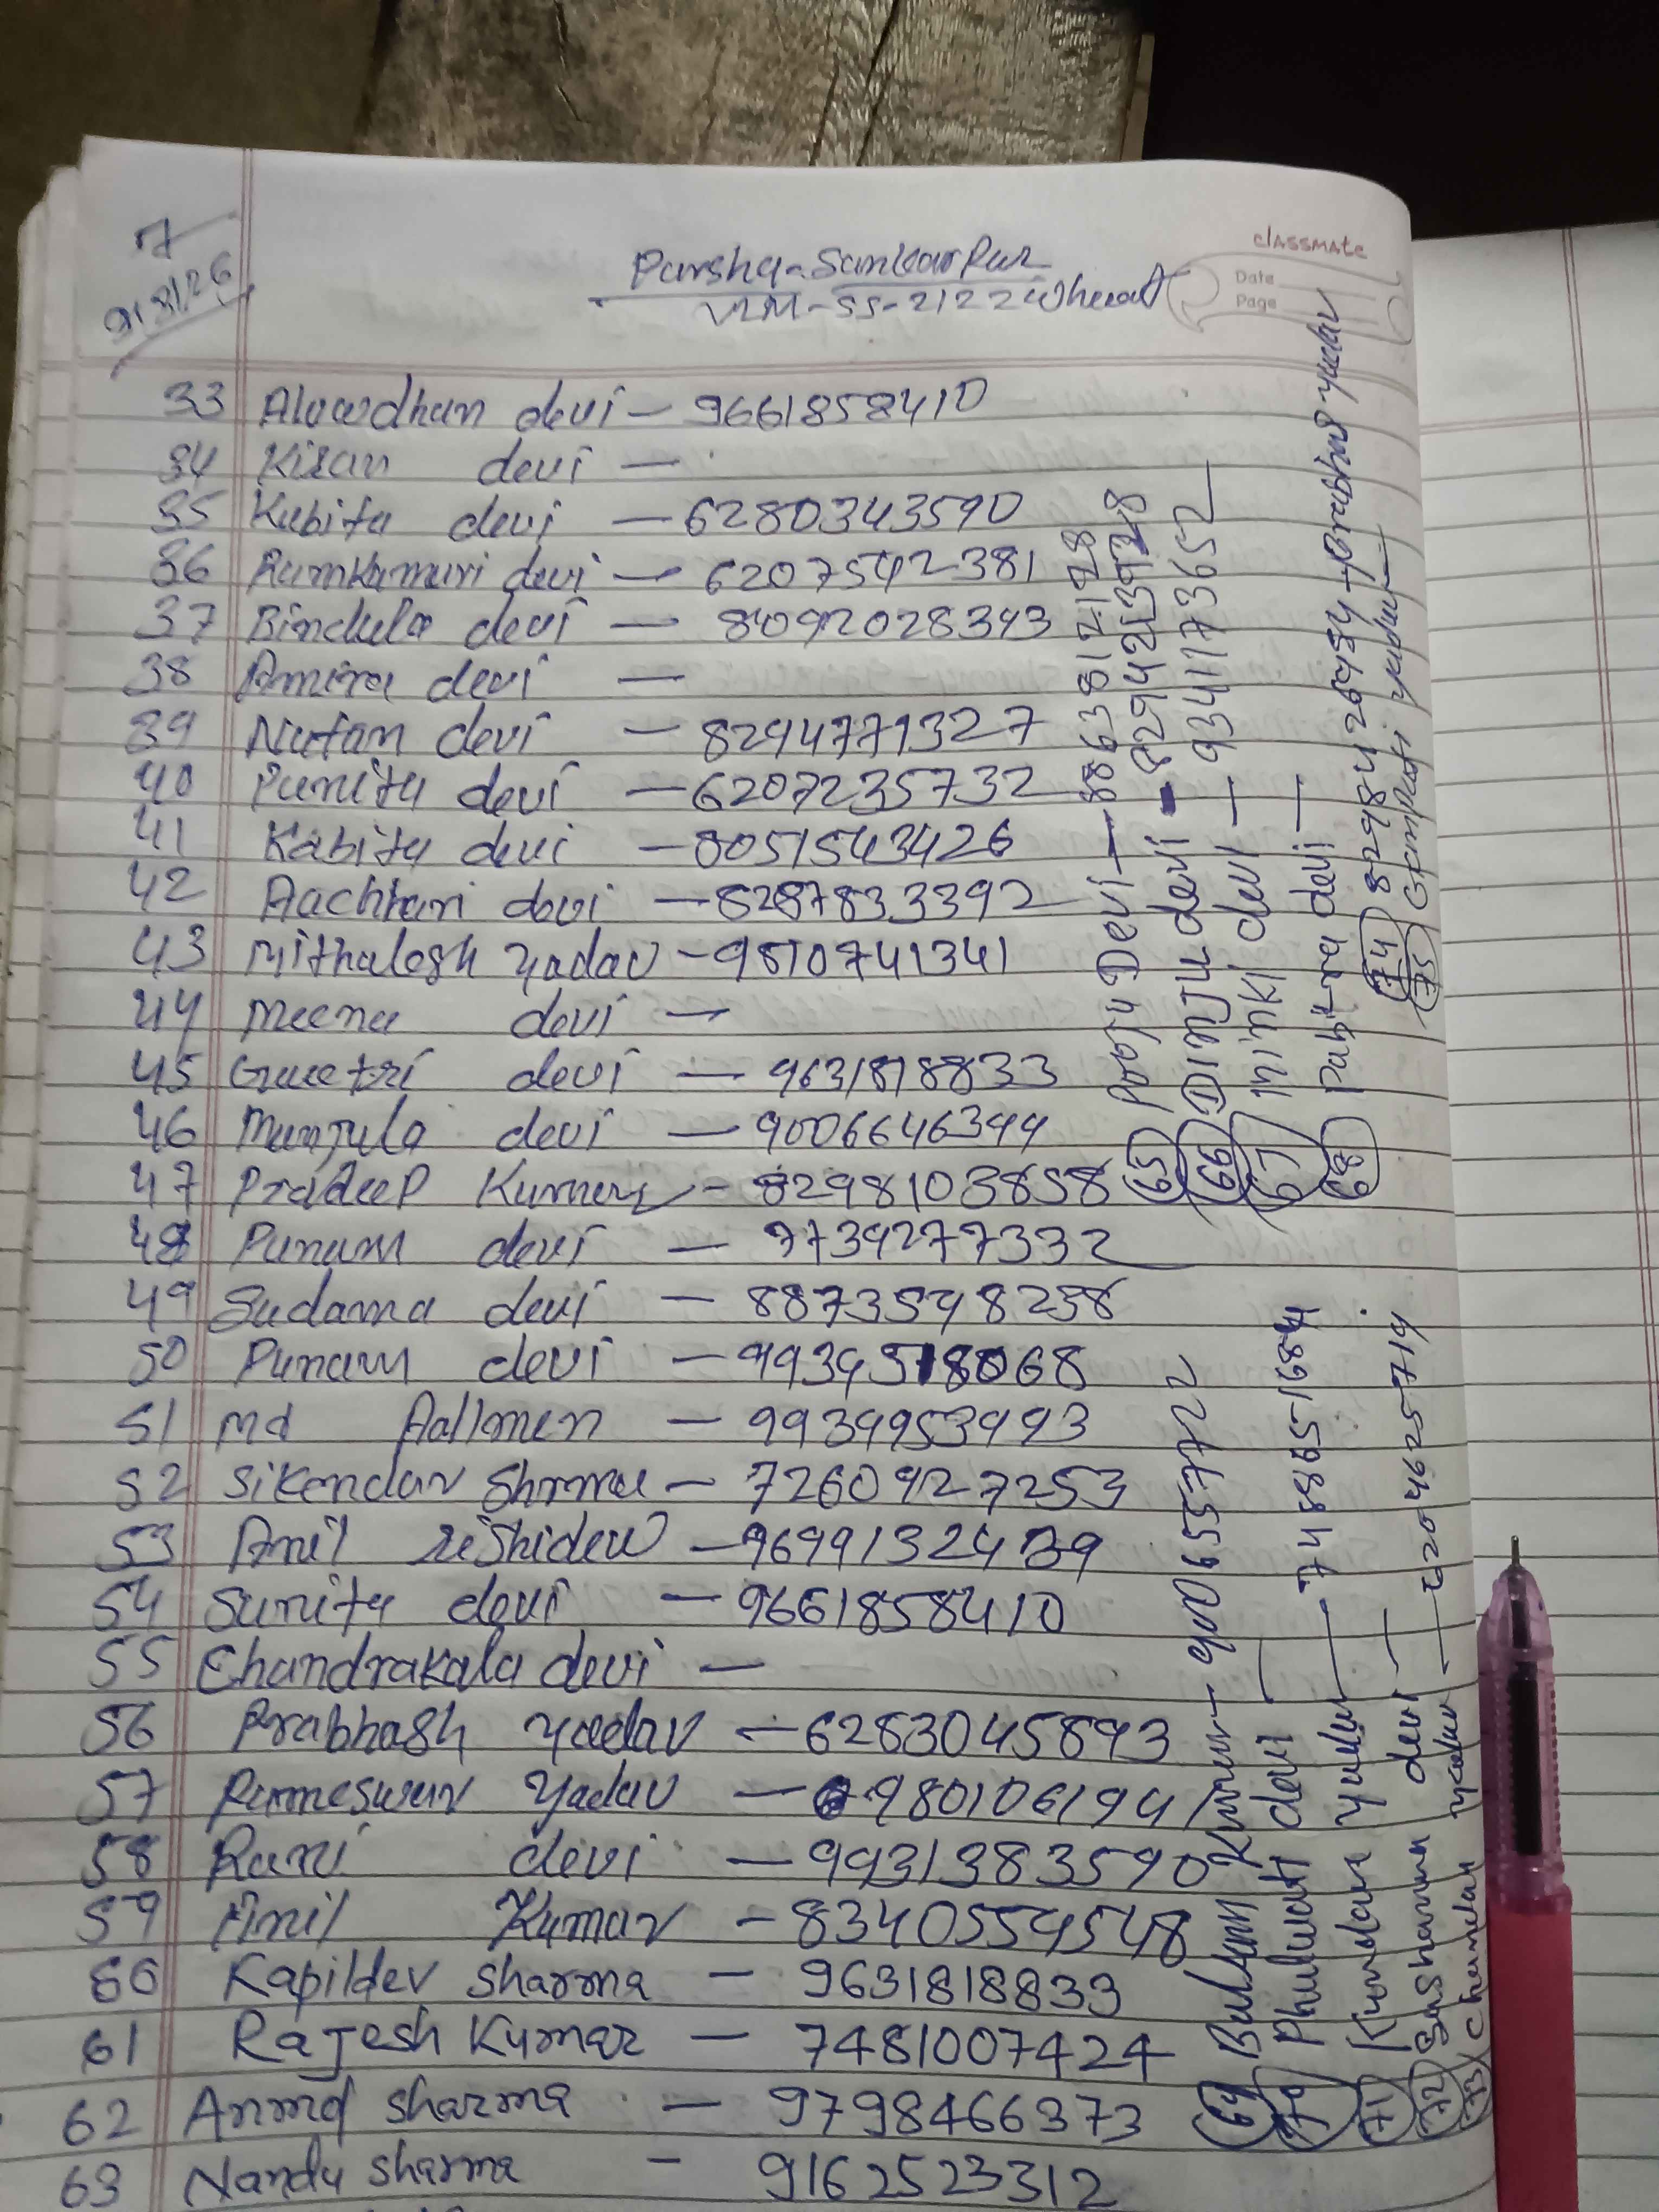 9/3/26
classmate
Date
Page
Parsha-Sankarpur
VNM-SS-2122 Wheat
33 Aluardhan devi - 9661858410
34 Kiran devi -
35 Kubita devi - 6280343590
36 Ramkumari devi - 6207542381
37 Bindula devi - 8092028343
38 Amira devi -
39 Nutan devi - 8294771327
40 Punita devi - 6207235732
41 Kabita devi - 8051543426
42 Aachhari devi - 8287833392
43 Mithalesh Yadav - 9810741341
44 Meena devi -
45 Guetri devi - 9631818833
46 Munjula devi - 9006646344
47 Pradeep Kumar - 8298103858
48 Punam devi - 7739277332
49 Sudama devi - 8873548238
50 Punam devi -
51 Md Aallmen - 9939953993
52 Sikendar Shrma - 7260927253
53 Anil rishidew - 9699132439
54 Sunita devi - 9661858410
55 Chandrakala devi -
56 Prabhash Yadav - 6283045893
57 Parmeswar Yadav - 9801061941
58 Rani devi - 9931383590
59 Anil Kumar - 8340554548
60 Kapildev Sharma - 9631818833
61 Rajesh Kumar - 7481007424
62 Anmol Sharma - 9798466373
63 Nandu Sharma - 9162523312
65 Pooja Devi - 8863812128
66 Dinju devi -
67 Minki devi - 9341173652
68 devi -
69 Kumar - 9006557722
70 Phulwati devi -
71 Kundan yadav - 7488651684
72 devi -
73 Chandan yadav - 6204625719
74 8298426454 - Prabhas yadav
75 yadav -